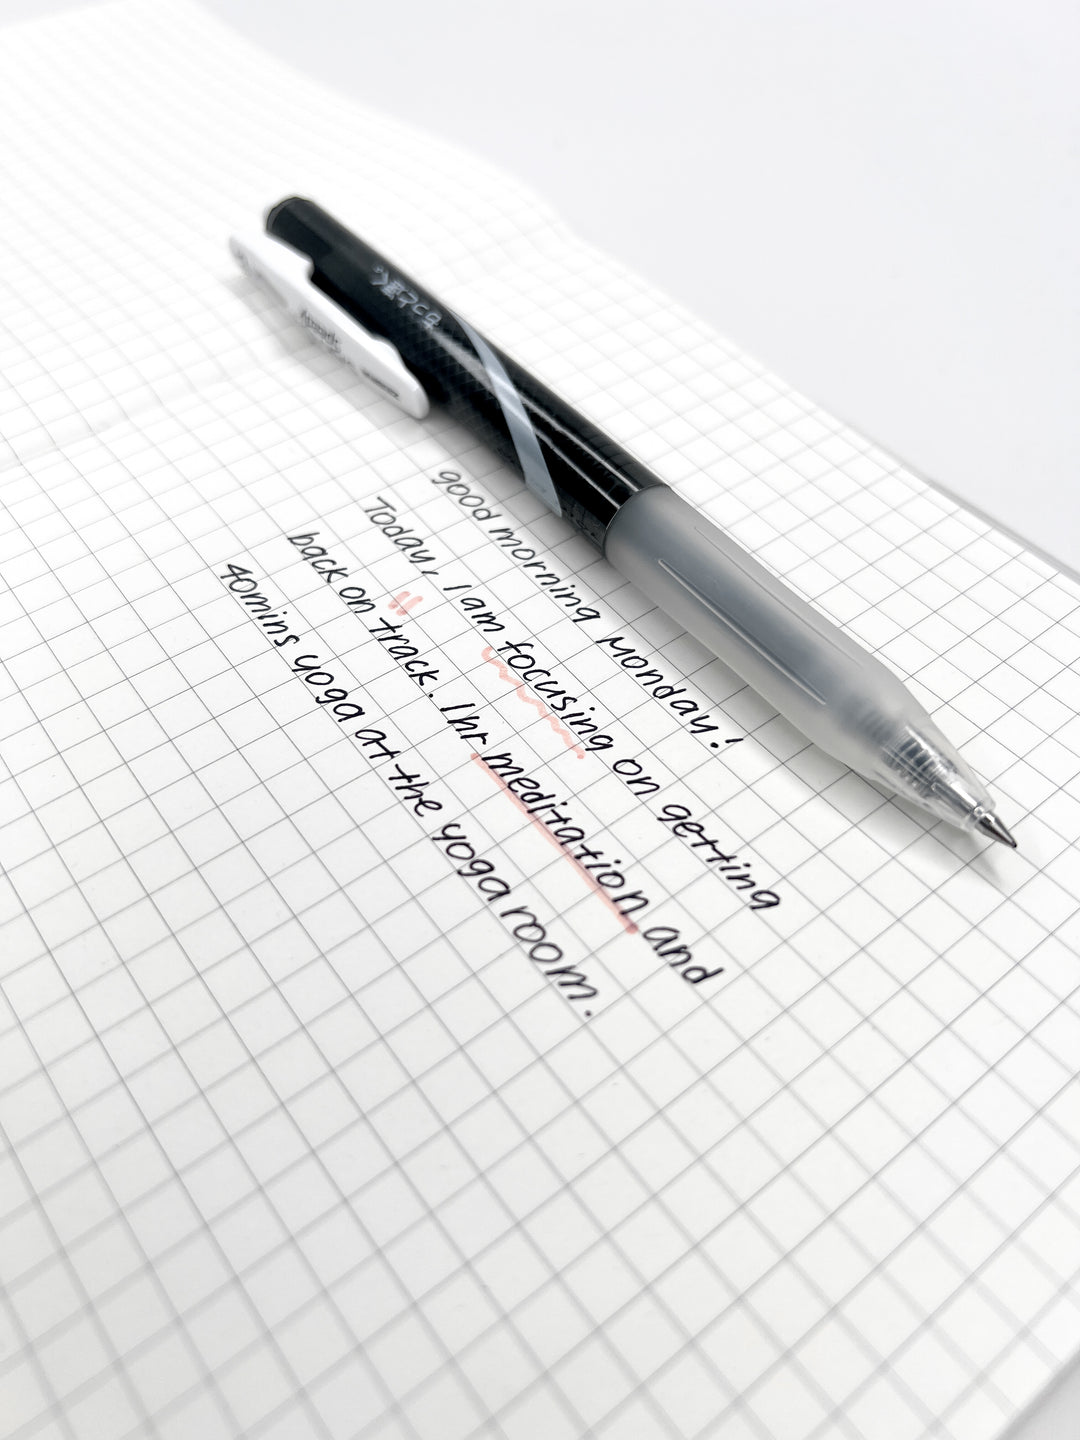 good morning Monday!
Today, I am focusing on getting
back on track. 1hr meditation and
40mins yoga at the yoga room.